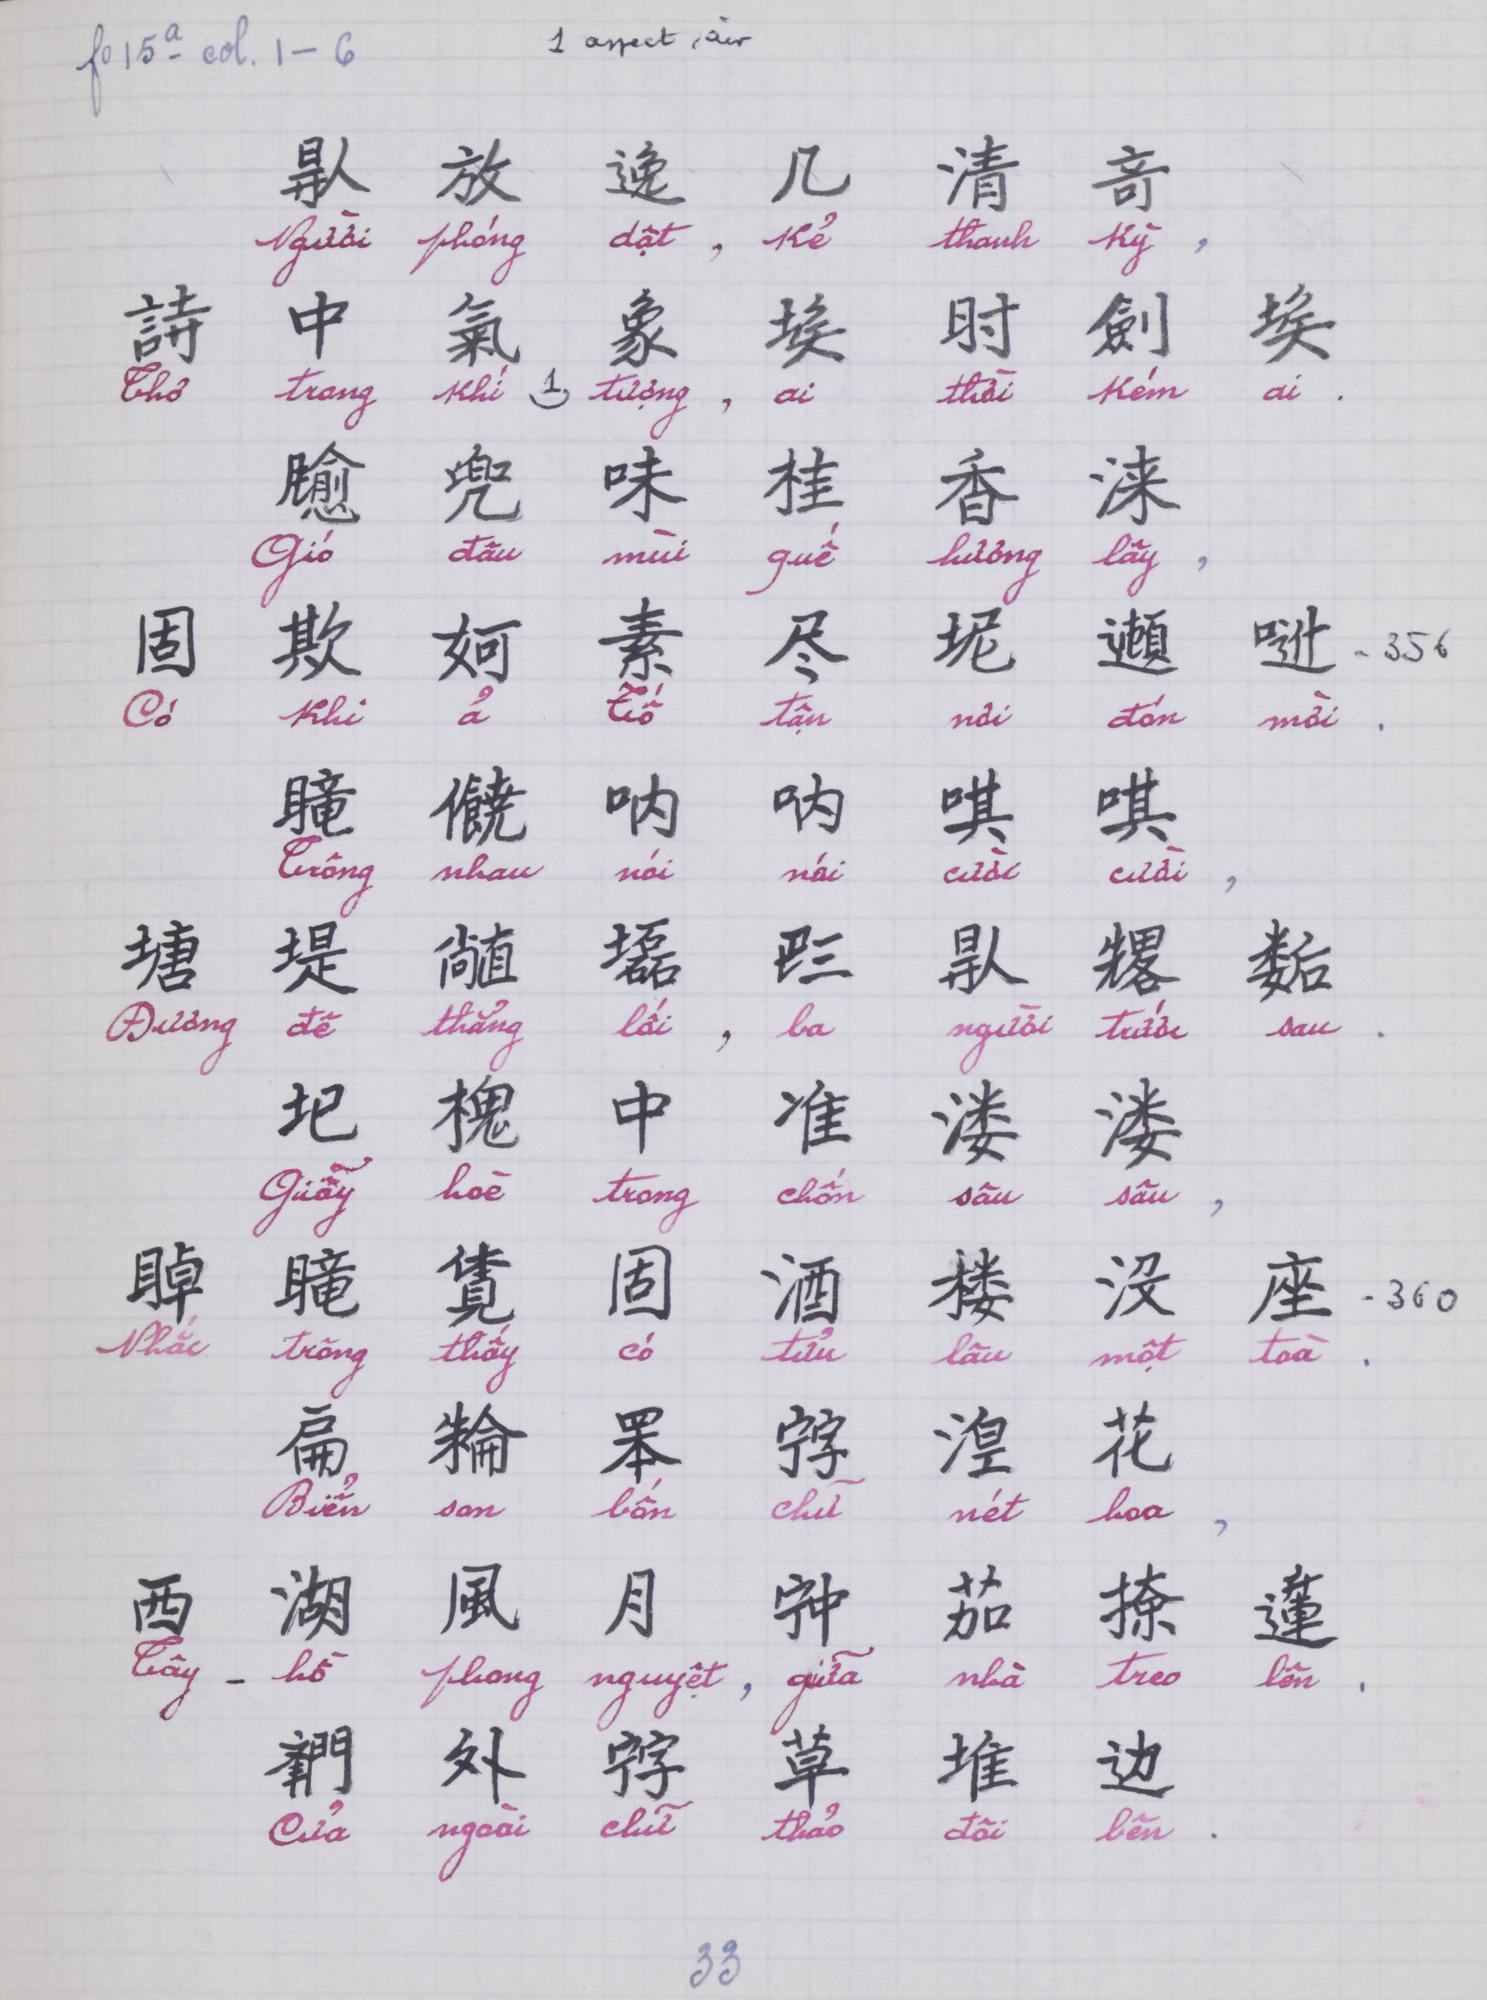 fo 15ª col. 1 – 6
1 aspect, air
放 逸 几 清 奇
Người phóng dật, Kẻ thanh Kỳ,
詩 中 氣 象 埃 时 劍 埃
Thơ trong khí 1 tượng, ai thời kém ai.
兜 味 桂 香 淶
Gió đâu mùi quế hương lấy,
固 欺 妸 素 尽 坭 𠶆 - 356
Có khi ả Tố tận nơi đón mời.
瞳 饒 吶 吶 唭 唭
Trông nhau nói nói cười cười,
塘 堤 𠀧 𠊛 𠓀 𢖖
Đường đê thẳng lối, ba người trước sau.
圯 槐 中 准 溇 溇
Giãy hoè trong chốn sâu sâu,
瞳 固 酒 楼 没 座 - 360
Nhắc trông thấy có tửu lâu một toà.
扁 𦊚 湟 花
Biển son bốn chữ nét hoa,
西 湖 風 月 茄 撩 蓮
Tây - hồ phong nguyệt, giữa nhà treo lên.
外 草 堆 边
Cửa ngoài chữ thảo đôi bên.
33